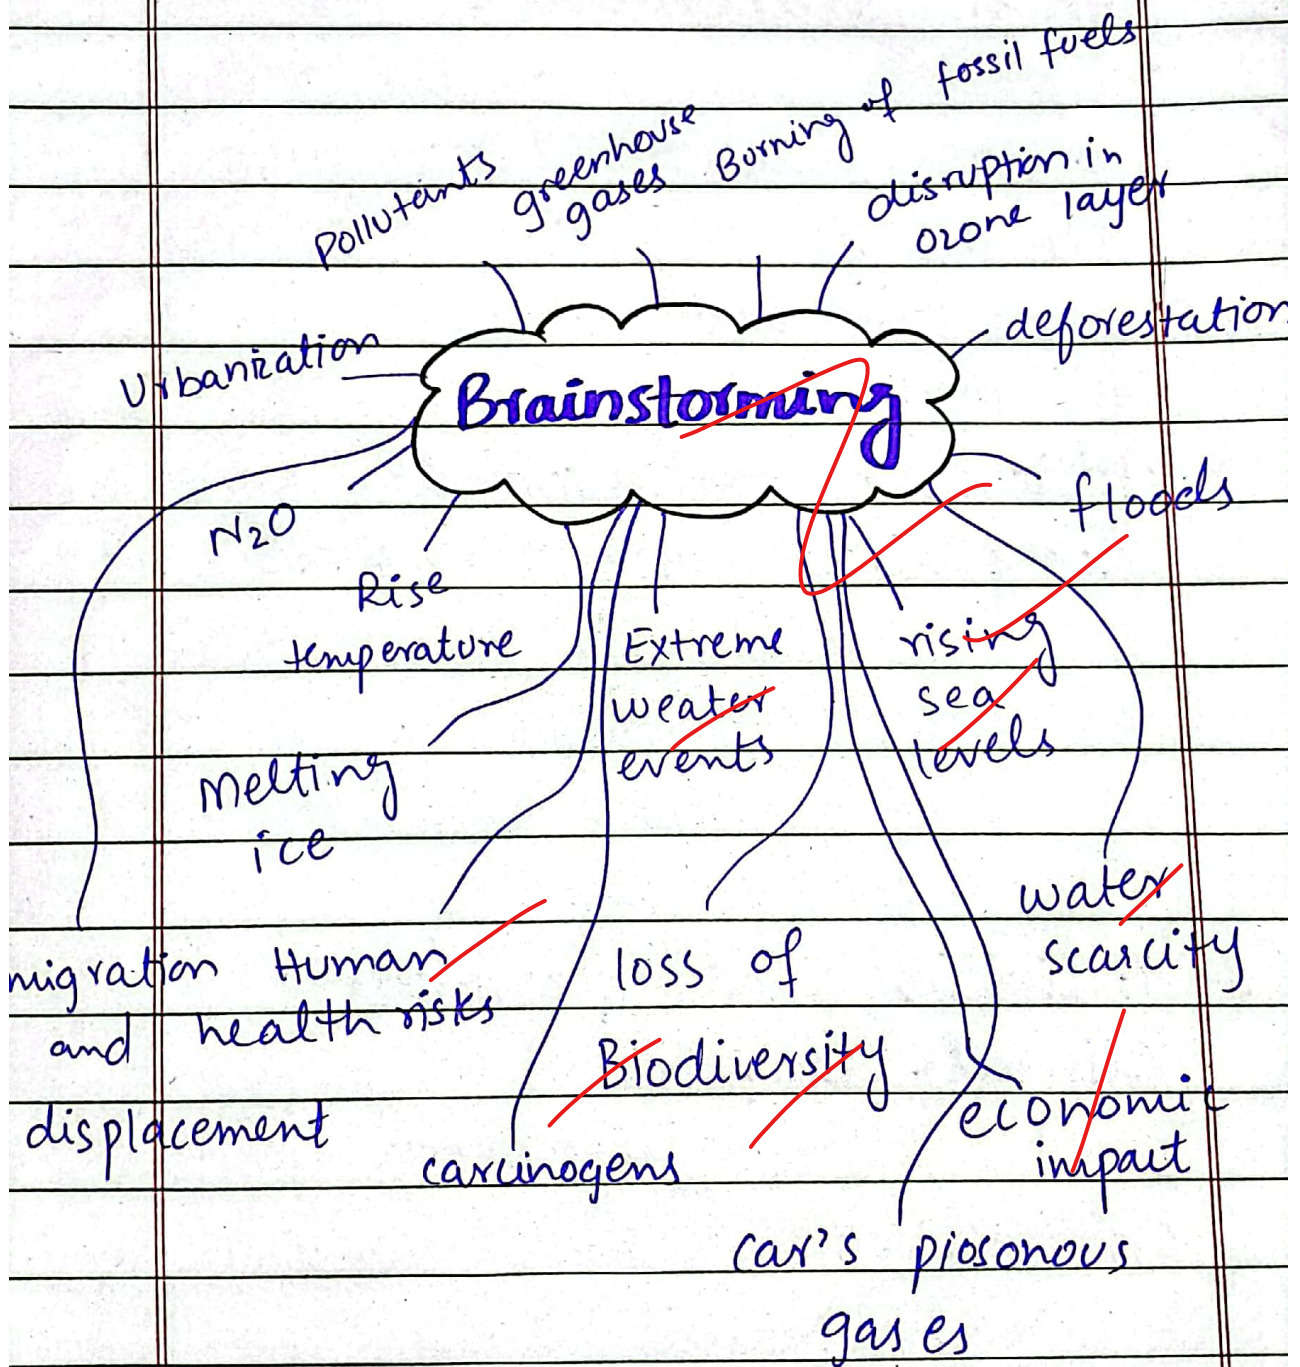 Pollutants
greenhouse
gases
Burning of fossil fuels
disruption in
ozone layer
Urbanization
deforestation
Brainstorming
N2O
floods
Rise
temperature
Extreme
weater
events
rising
sea
levels
Melting
ice
water
scarcity
migration
and
displacement
Human
health risks
loss of
Biodiversity
economic
impact
carcinogens
car's piosonous
gases